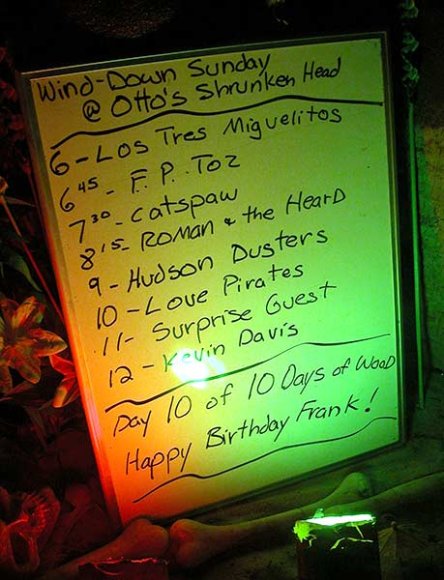 Wind-Down Sunday
@ Otto's Shrunken Head
6 - Los Tres Miguelitos
6 45 - F.P. Toz
7 30 - Catspaw
8 15 - Roman & the HearD
9 - Hudson Dusters
10 - Love Pirates
11 - Surprise Guest
12 - Kevin Davis
Day 10 of 10 Days of WooD
Happy Birthday Frank!